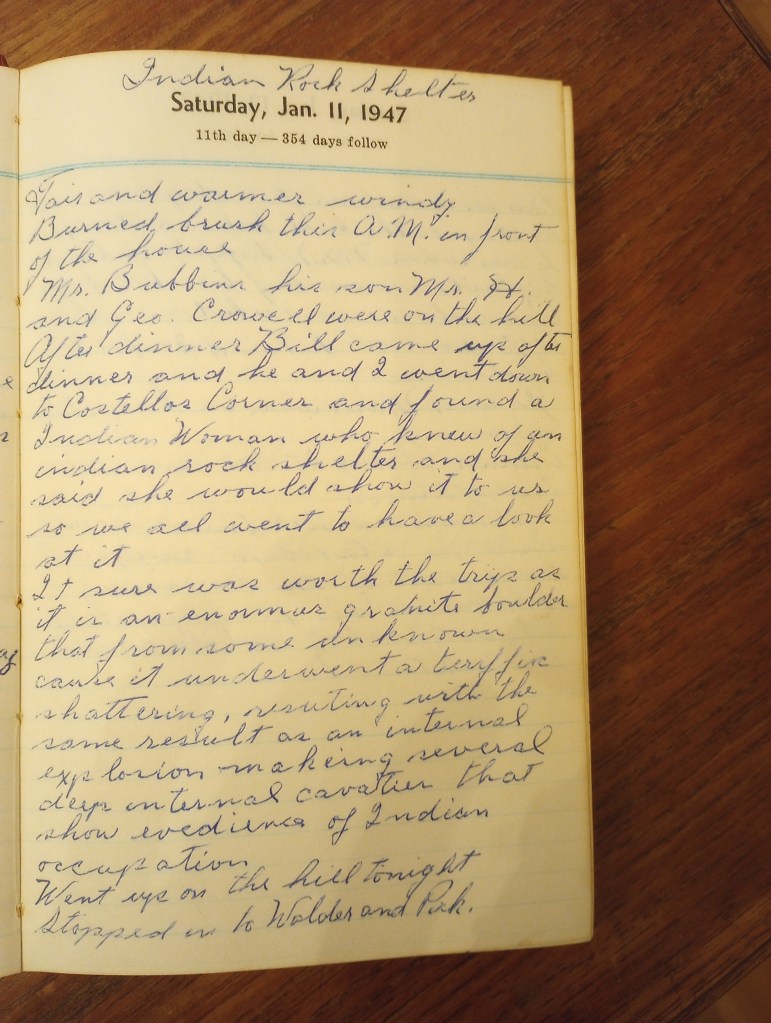 Indian Rock Shelter
Saturday, Jan. 11, 1947
11th day — 354 days follow
Fair and warmer windy
Burned brush this A.M. in front
of the house
Mr. Bubbins his son Mr. H.
and Geo. Crowell were on the hill
After dinner Bill came up after
dinner and he and I went down
to Costellos Corner and found a
Indian Woman who knew of an
indian rock shelter and she
said she would show it to us
so we all went to have a look
at it
It sure was worth the trip as
it is an enormus granite boulder
that from some unknown
cause it underwent a teryffic
shattering, resuting with the
same result as an internal
explosion making several
deep internal cavatier that
show evedience of Indian
occupation
Went up on the hill tonight
Stopped in to Walder and